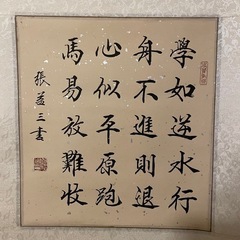 學如逆水行
舟不進則退
心似平原跑
馬易放難收
張益三書